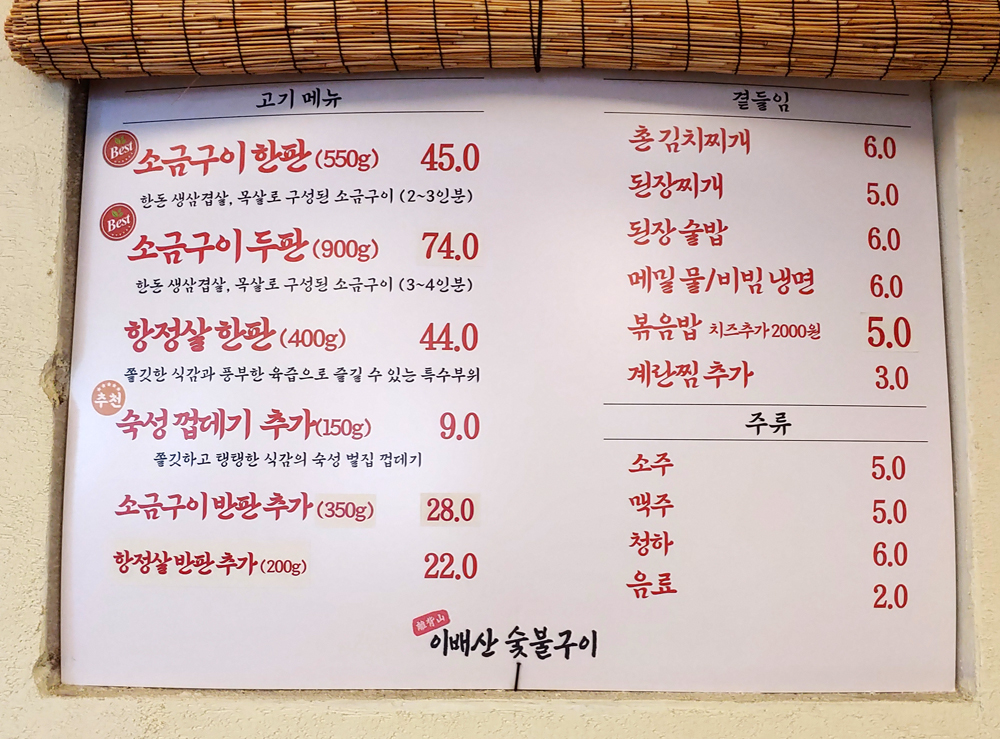 고기 메뉴
Best
소금구이 한판 (550g) 45.0
한돈 생삼겹살, 목살로 구성된 소금구이 (2~3인분)
Best
소금구이 두판 (900g) 74.0
한돈 생삼겹살, 목살로 구성된 소금구이 (3~4인분)
항정살 한판 (400g) 44.0
쫄깃한 식감과 풍부한 육즙으로 즐길 수 있는 특수부위
추천
숙성 껍데기 추가 (150g) 9.0
쫄깃하고 탱탱한 식감의 숙성 벌집 껍데기
소금구이 반판 추가 (350g) 28.0
항정살 반판 추가 (200g) 22.0
곁들임
촌 김치찌개 6.0
된장찌개 5.0
된장 술밥 6.0
메밀 물/비빔 냉면 6.0
볶음밥 치즈추가 2000원 5.0
계란찜 추가 3.0
주류
소주 5.0
맥주 5.0
청하 6.0
음료 2.0
離背山
이배산 숯불구이